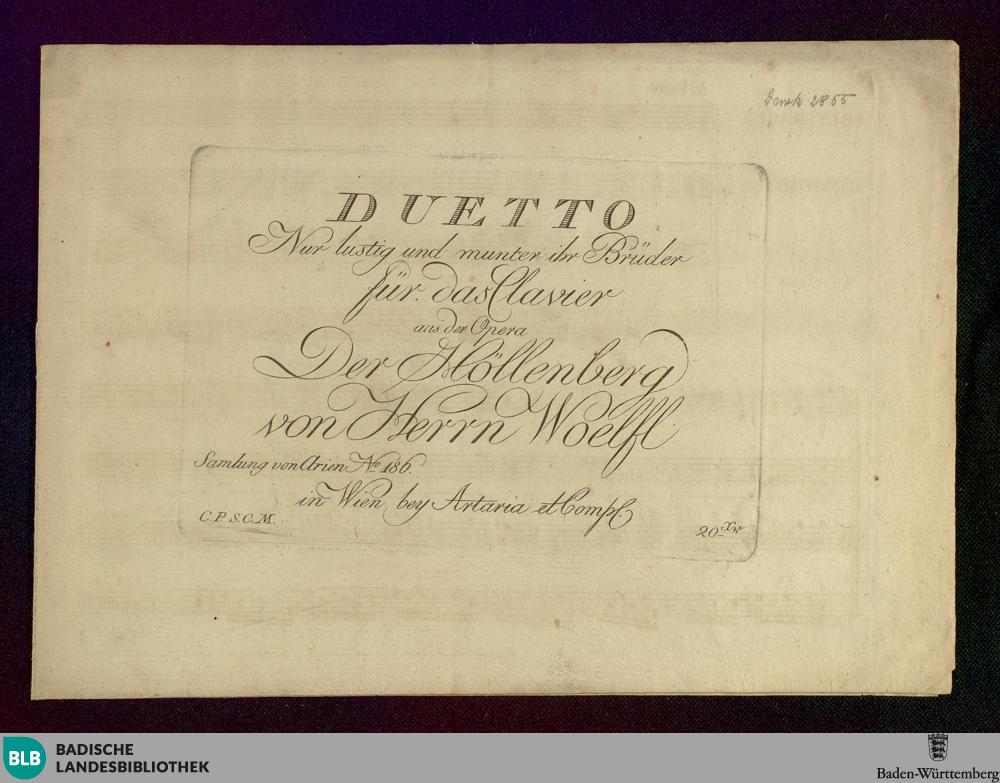 Druck 2855
DUETTO
Nur lustig und munter ihr Brüder
für das Clavier
aus der Opera
Der Höllenberg
von Herrn Woelfl
Samlung von Arien No 186.
in Wien bey Artaria et Comp.
C. P. S. C. M.
20 Xr
BLB BADISCHE
LANDESBIBLIOTHEK
Baden-Württemberg